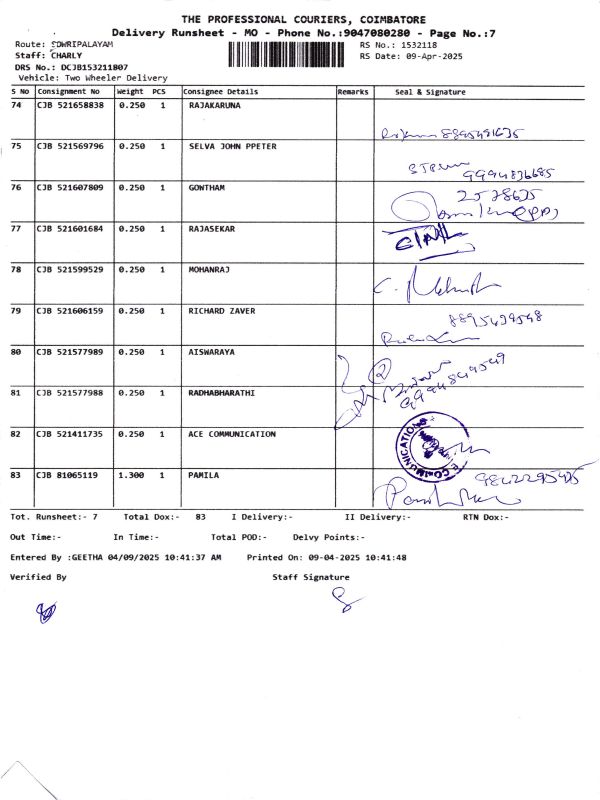 THE PROFESSIONAL COURIERS, COIMBATORE
Delivery Runsheet - MO - Phone No.:9047080280 - Page No.:7
Route: SOWRIPALAYAM RS No.: 1532118
Staff: CHARLY RS Date: 09-Apr-2025
DRS No.: DCJB153211807
Vehicle: Two Wheeler Delivery
S No Consignment No Weight PCS Consignee Details Remarks Seal & Signature
74 CJB 521658838 0.250 1 RAJAKARUNA
8895491635
75 CJB 521569796 0.250 1 SELVA JOHN PPETER
9994836685
76 CJB 521607809 0.250 1 GONTHAM
2578635
77 CJB 521601684 0.250 1 RAJASEKAR
78 CJB 521599529 0.250 1 MOHANRAJ
79 CJB 521606159 0.250 1 RICHARD ZAVER
8895439548
80 CJB 521577989 0.250 1 AISWARAYA
81 CJB 521577988 0.250 1 RADHABHARATHI
82 CJB 521411735 0.250 1 ACE COMMUNICATION
83 CJB 81065119 1.300 1 PAMILA
Tot. Runsheet:- 7 Total Dox:- 83 I Delivery:- II Delivery:- RTN Dox:-
Out Time:- In Time:- Total POD:- Delvy Points:-
Entered By :GEETHA 04/09/2025 10:41:37 AM Printed On: 09-04-2025 10:41:48
Verified By Staff Signature